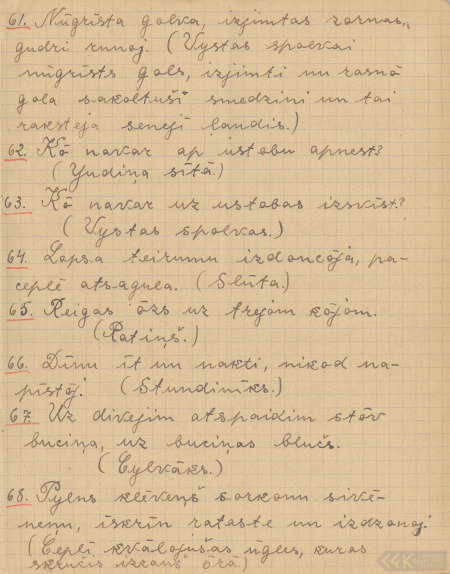 61. Nūgrīsta golva, izjimtas zornas,
gudri runoj. (Vystas spolvai
nūgrīsts gols, izjimti nu rasnō
gola sakaltuši smedzini un tai
raksteja senejī laudis.)
62. Kō navar ap ustobu apnest?
(Yudiņa sītā.)
63. Kō navar uz ustobas izsvīst?
(Vystas spolvas.)
64. Lopsa teirumu izdoncōja, pa-
ceplē atsagula. (Slūta.)
65. Reigas ōzs uz trejom kōjom.
(Ratiņš.)
66. Dīnu īt un nakti, nikod na-
pīstōj. (Stundinīks.)
67. Uz divejim atspaidim stōv
buciņa, uz buciņas blučs.
(Cylvāks.)
68. Pylns klēveņš sorkonu sivē-
neņu, īskrīn rataste un izdzonoj.
(Ceplī kvālojušas ūgles, kuras
skruķis izrauš ōrā.)